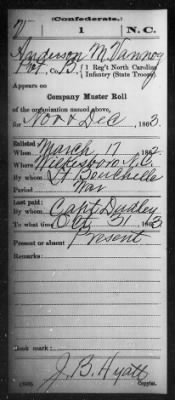 (Confederate.)
V 1 N.C.
Anderson M. Vannoy
Pvt, Co. B, 1 Reg't North Carolina
Infantry (State Troops).
Appears on
Company Muster Roll
of the organization named above,
for Nov & Dec, 1863
Enlisted
When March 17, 1862
Where Wilkesboro N.C.
By whom Lt Bouchelle
Period War
Last paid:
By whom Capt Dudley
To what time Oct 31, 1863
Present or absent Present
Remarks:
Book mark:
J. B. Hyatt
Copyist.